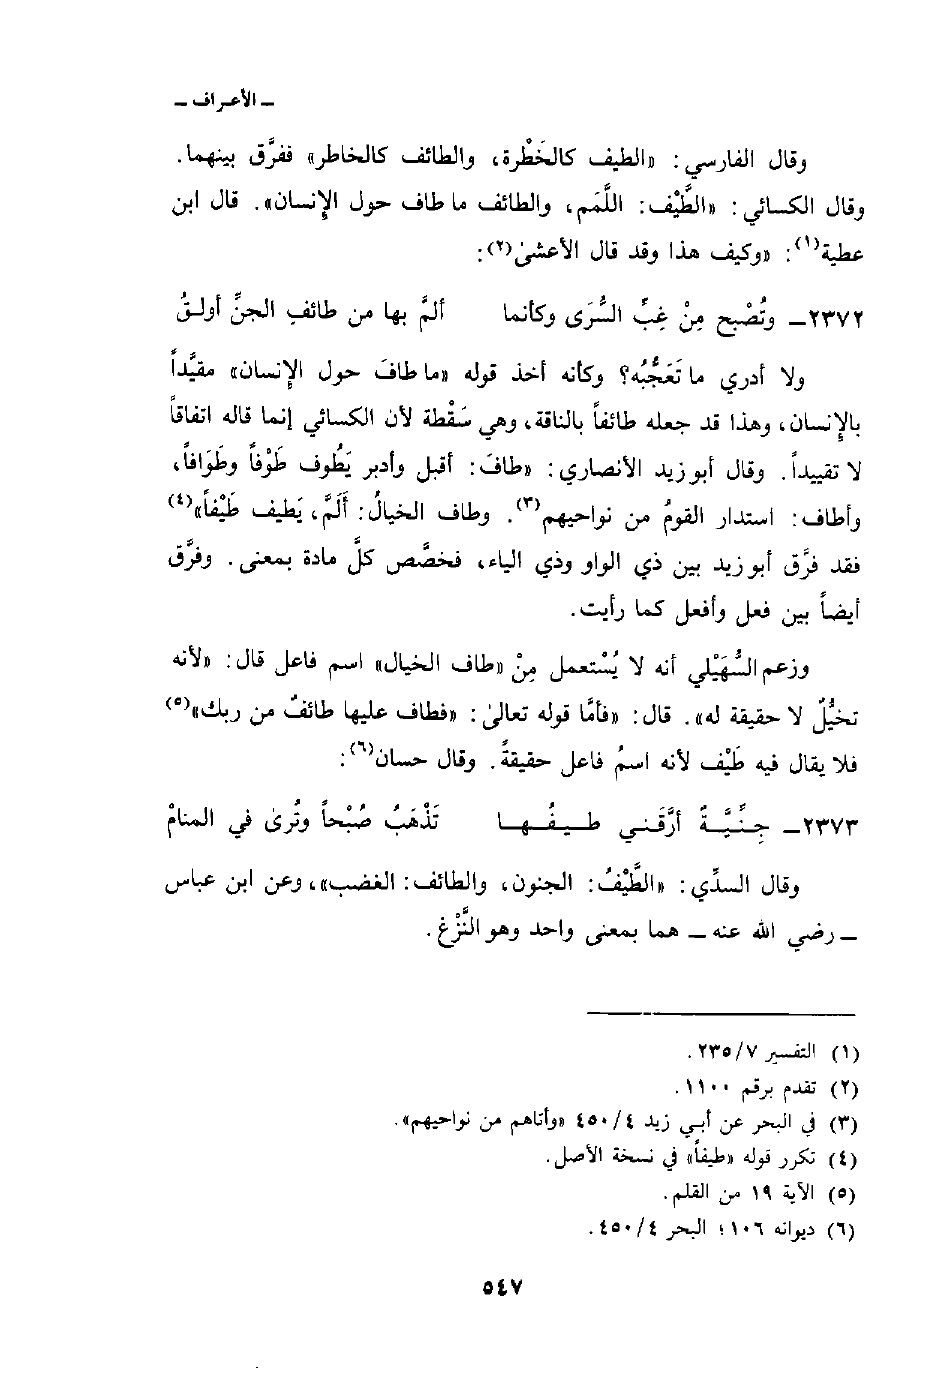 ـ الأعراف ـ
وقال الفارسي: «الطيف كالخَطْرة، والطائف كالخاطر» ففرَّق بينهما.
وقال الكسائي: «الطَّيْف: اللَّمَم، والطائف ما طاف حول الإِنسان». قال ابن
عطية(١): «وكيف هذا وقد قال الأعشىٰ(٢):
٢٣٧٢ـ وتُصْبح مِنْ غِبِّ السُّرَى وكأنما ألمَّ بها من طائفِ الجنِّ أولقُ
ولا أدري ما تَعَجُّبُه؟ وكأنه أخذ قوله «ما طافَ حول الإِنسان» مقيَّداً
بالإِنسان، وهذا قد جعله طائفاً بالناقة، وهي سَقْطة لأن الكسائي إنما قاله اتفاقاً
لا تقييداً. وقال أبو زيد الأنصاري: «طافَ: أقبل وأدبر يَطُوف طَوْفاً وطَوَافاً،
وأطاف: استدار القومُ من نواحيهم(٣). وطاف الخيالُ: أَلَمَّ، يَطيف طَيْفاً»(٤)
فقد فرَّق أبو زيد بين ذي الواو وذي الياء، فخصَّص كلَّ مادة بمعنى. وفرَّق
أيضاً بين فعل وأفعل كما رأيت.
وزعم السُّهَيْلي أنه لا يُسْتعمل مِنْ «طاف الخيال» اسم فاعل قال: «لأنه
تخيُّلٌ لا حقيقة له». قال: «فأمَّا قوله تعالىٰ: «فطاف عليها طائفٌ من ربك»(٥)
فلا يقال فيه طَيْف لأنه اسمُ فاعل حقيقةً. وقال حسان(٦):
٢٣٧٣ـ جِنِّيَّةٌ أرَّقني طيفُها تَذْهَبُ صُبْحاً وتُرىٰ في المنامْ
وقال السدِّي: «الطَّيْفُ: الجنون، والطائف: الغضب»، وعن ابن عباس
ـ رضي الله عنه ـ هما بمعنى واحد وهو النَّزْغ.
(١) التفسير ٧/٢٣٥.
(٢) تقدم برقم ١١٠٠.
(٣) في البحر عن أبي زيد ٤/٤٥٠ «وأتاهم من نواحيهم».
(٤) تكرر قوله «طيفاً» في نسخة الأصل.
(٥) الآية ١٩ من القلم.
(٦) ديوانه ١٠٦؛ البحر ٤/٤٥٠.
٥٤٧